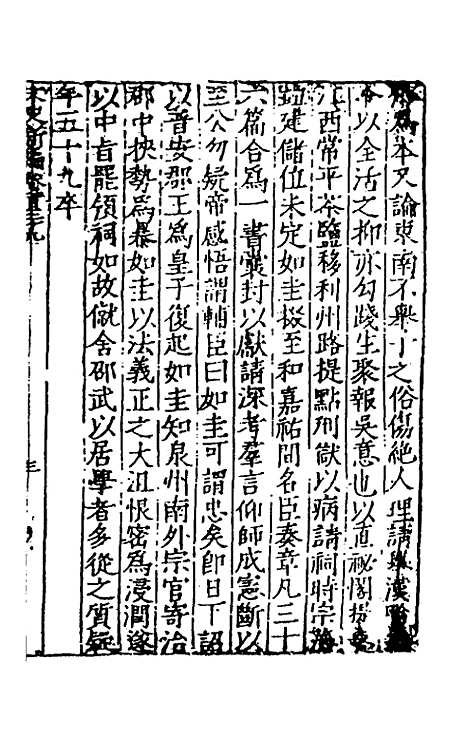 爲本又論東南不舉子之俗傷絶人理請舉漢
令以全活之抑亦勾踐生聚報吳意也以直祕閣提舉
江西常平茶鹽移利州路提點刑獄以病請祠時宗藩
並建儲位未定如圭掇至和嘉祐間名臣奏章凡三十
六篇合爲一書囊封以獻請深考羣言仰師成憲斷以
至公勿疑帝感悟謂輔臣曰如圭可謂忠矣卽日下詔
以普安郡王爲皇子復起如圭知泉州南外宗官寄治
郡中挾勢爲暴如圭以法義正之大沮恨密爲浸潤遂
以中旨罷領祠如故僦舍邵武以居學者多從之質疑
年五十九卒
宋史新編卷百三十九
三